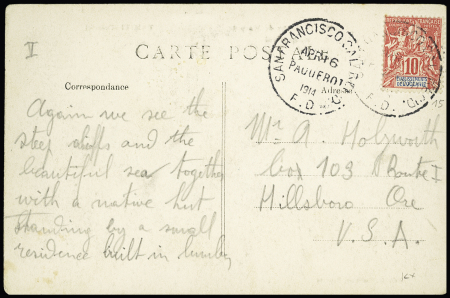 V
CARTE POSTALE
SAN FRANCISCO CAL.
APR 6
PAQUEBOT
1914
F. D.
10
Correspondance
Adresse
Again we see the
steep cliffs and the
beautiful sea together
with a native hut
standing by a small
residence built in lumber
Mr A. Holzworth
box 103 Route 1
Hillsboro Ore
U.S.A.